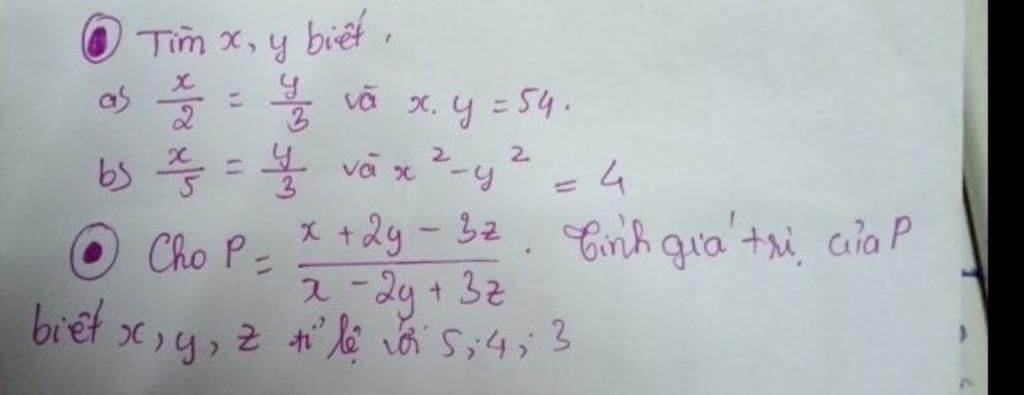 Tìm x, y biết.
a) x/2 = y/3 và x.y = 54.
b) x/5 = y/3 và x² - y² = 4
Cho P = (x + 2y - 3z)/(x - 2y + 3z). Tính giá trị của P
biết x, y, z tỉ lệ với 5; 4; 3